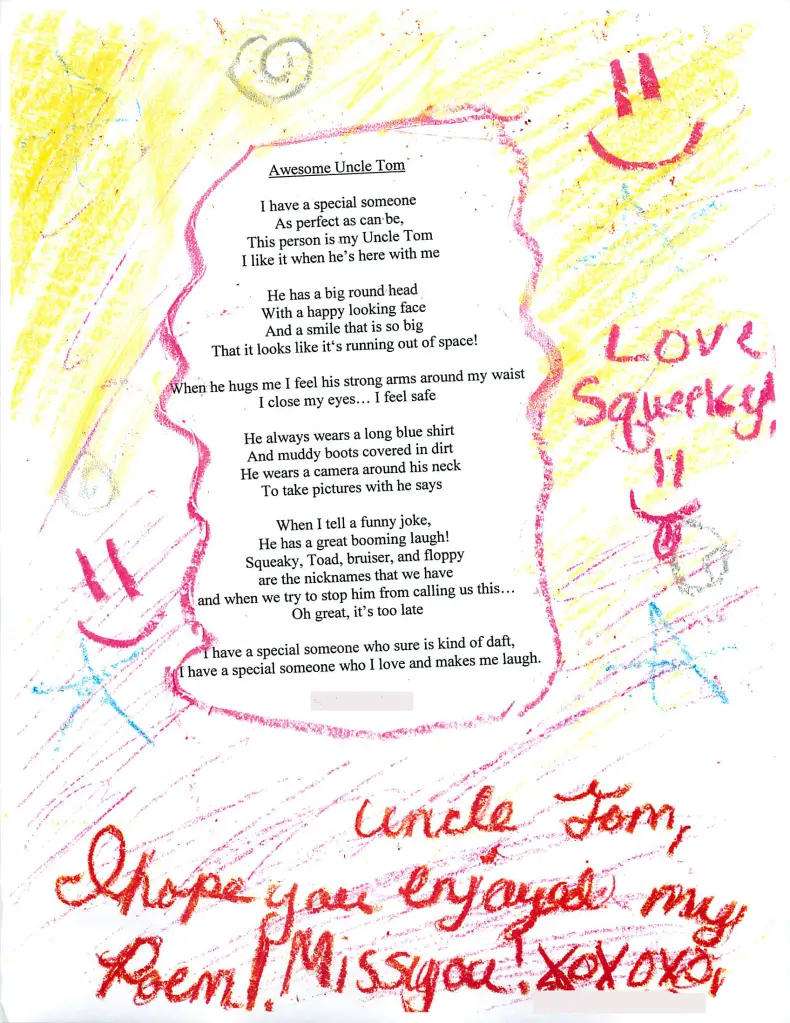 Awesome Uncle Tom
I have a special someone
As perfect as can be,
This person is my Uncle Tom
I like it when he's here with me
He has a big round head
With a happy looking face
And a smile that is so big
That it looks like it's running out of space!
When he hugs me I feel his strong arms around my waist
I close my eyes… I feel safe
He always wears a long blue shirt
And muddy boots covered in dirt
He wears a camera around his neck
To take pictures with he says
When I tell a funny joke,
He has a great booming laugh!
Squeaky, Toad, bruiser, and floppy
are the nicknames that we have
and when we try to stop him from calling us this…
Oh great, it's too late
I have a special someone who sure is kind of daft,
I have a special someone who I love and makes me laugh.
Love
Squeeky!
Uncle Tom,
I hope you enjoyed my
Poem! Miss you! XOXOXO,